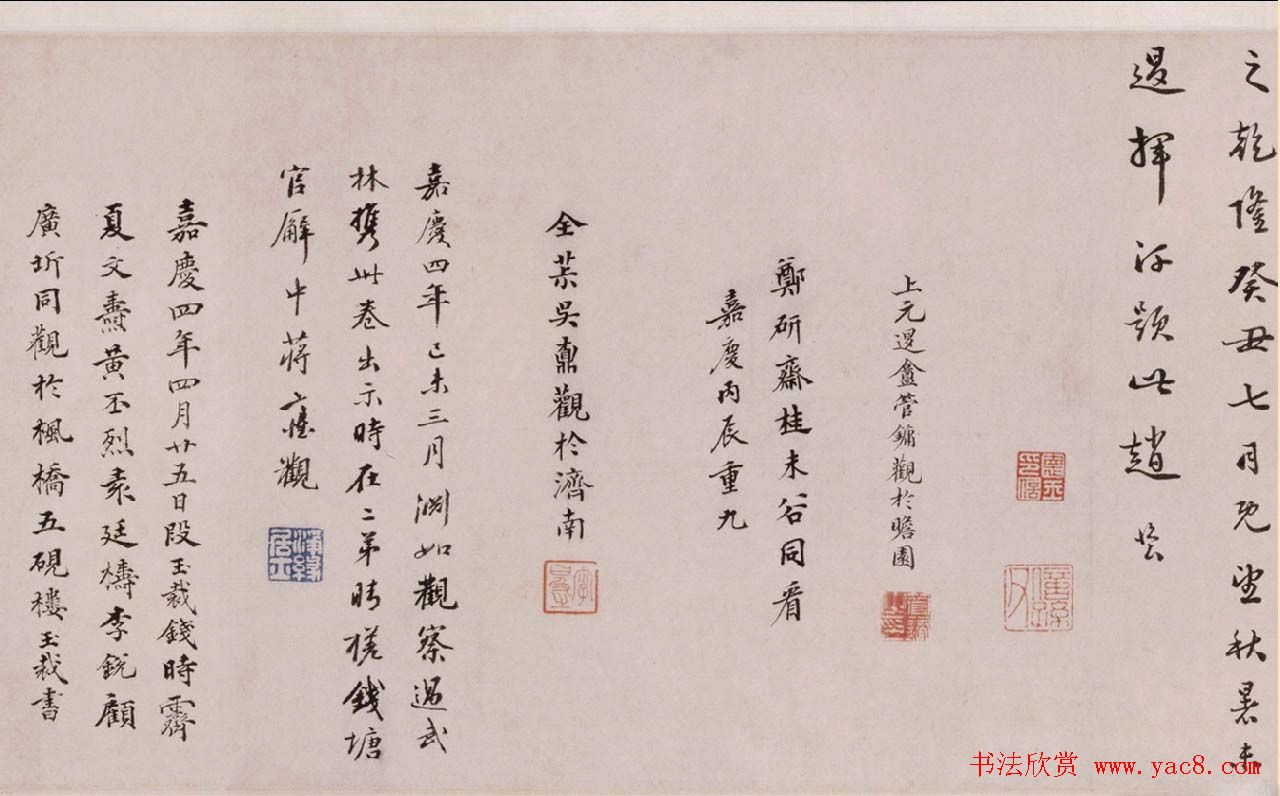 之乾隆癸丑七月既望秋暑未
退揮汗題此趙
上元退盦管鏞觀於瞻園
鄭研齋桂未谷同看
嘉慶丙辰重九
全茮吳鼒觀於濟南
嘉慶四年己未三月淵如觀察過武
林携此卷出示時在二弟時槎錢塘
官廨中蔣 觀
嘉慶四年四月廿五日段玉裁錢時霽
夏文燾黃丕烈袁廷檮李銳顧
廣圻同觀於楓橋五硯樓玉裁書
书法欣赏 www.yac8.com